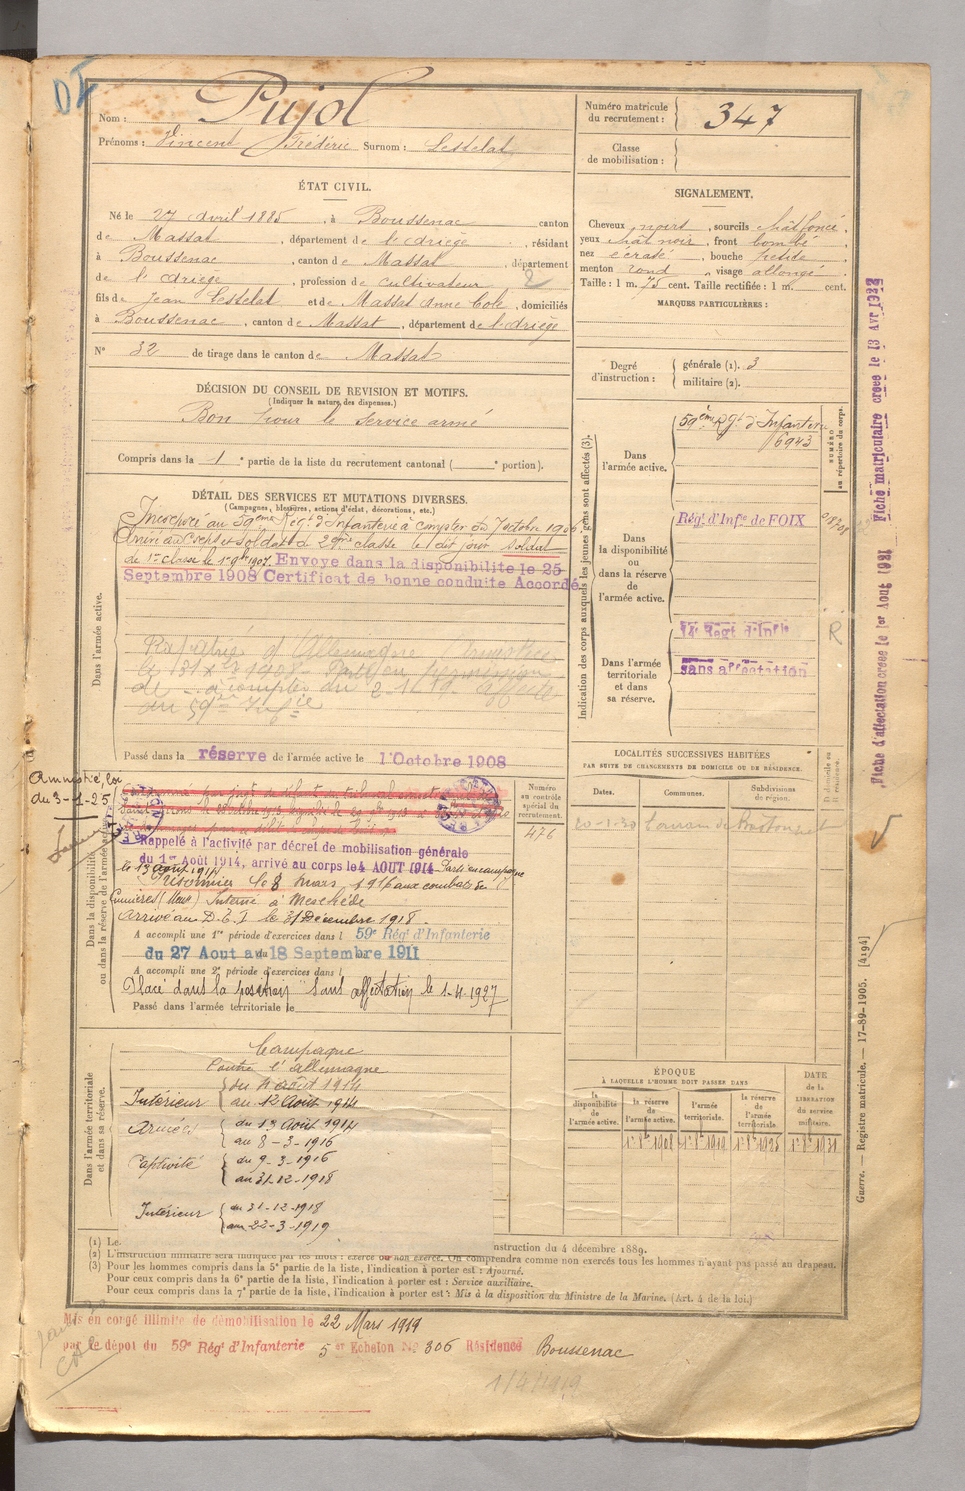 Nom : Pujol
Prénoms : Vincent Frédéric Surnom : Lestelat
Numéro matricule du recrutement : 347
Classe de mobilisation :
ÉTAT CIVIL.
Né le 27 avril 1885, à Boussenac canton
de Massat, département de l'Ariège, résidant
à Boussenac, canton de Massat, département
de l'Ariège, profession de cultivateur 2
fils de Jean Lestelat et de Masset Anne Cole, domiciliés
à Boussenac, canton de Massat, département de l'Ariège
N° 32 de tirage dans le canton de Massat
SIGNALEMENT.
Cheveux noirs, sourcils chât foncé,
yeux chât noir, front bombé,
nez écrasé, bouche petite,
menton rond, visage allongé.
Taille : 1 m. 73 cent. Taille rectifiée : 1 m. cent.
MARQUES PARTICULIÈRES :
Degré d'instruction : générale (1). 3
militaire (2).
DÉCISION DU CONSEIL DE REVISION ET MOTIFS.
(Indiquer la nature des dispenses.)
Bon pour le service armé
Compris dans la 1e partie de la liste du recrutement cantonal ( e portion).
DÉTAIL DES SERVICES ET MUTATIONS DIVERSES.
(Campagnes, blessures, actions d'éclat, décorations, etc.)
Dans l'armée active.
Incorporé au 59ème Régt d'Infanterie à compter du 7 octobre 1906
Arrivé au Corps et soldat de 2ème classe le dit jour soldat
de 1re classe le 1er 9bre 1907. Envoye dans la disponibilite le 25
Septembre 1908 Certificat de bonne conduite Accordé
Rapatrié d'Allemagne
au 59e Infie
Passé dans la réserve de l'armée active le 1 Octobre 1908
Amnistié, loi
du 3-1-25
Dans la disponibilité ou dans la réserve de l'armée active.
Rappelé à l'activité par décret de mobilisation générale
du 1er Août 1914, arrivé au corps le 4 AOUT 1914 Parti en campagne
le 13 août 1914
Prisonnier le 8 mars 1916 aux combats de
Cumières (Meuse) Interné à Meschede
Arrivé au D. C. I le 31 Décembre 1918.
A accompli une 1re période d'exercices dans l 59e Rég! d'Infanterie
du 27 Aout au 18 Septembre 1911
A accompli une 2e période d'exercices dans l
Placé dans la position "sans affectation" le 1-4-1927
Passé dans l'armée territoriale le
Numéro au contrôle spécial du recrutement.
476
Dans l'armée territoriale et dans sa réserve.
Campagne
Contre l'Allemagne
Intérieur { du 4 août 1914
au 12 Août 1914
Armées { du 13 Août 1914
au 8-3-1916
Captivité { du 9-3-1916
au 31-12-1918
Intérieur { du 31-12-1918
au 22-3-1919
Indication des corps auxquels les jeunes gens sont affectés (3).
Dans l'armée active.
59ème Rgt d'Infanterie
6943
NUMÉRO au répertoire du corps.
Dans la disponibilité ou dans la réserve de l'armée active.
Régt d'Infie de FOIX
Dans l'armée territoriale et dans sa réserve.
14e Regt d'Infie
sans affectation
R
LOCALITÉS SUCCESSIVES HABITÉES
PAR SUITE DE CHANGEMENTS DE DOMICILE OU DE RÉSIDENCE.
Dates. Communes. Subdivisions de région. D. domicile ou R. résidence.
20-1-30
ÉPOQUE
À LAQUELLE L'HOMME DOIT PASSER DANS
la disponibilité de l'armée active. la réserve de l'armée active. l'armée territoriale. la réserve de l'armée territoriale.
DATE de la LIBÉRATION du service militaire.
Fiche d'affectation créée le 1er Aout 1921
Fiche matriculaire créée le 13 Avr 1922
Guerre. — Registre matricule. — 17-89-1905. [4194]
(1) Le.
nstruction du 4 décembre 1889.
(2) L'instruction militaire sera indiquée par les mots : exercé ou non exercé. On comprendra comme non exercés tous les hommes n'ayant pas passé au drapeau.
(3) Pour les hommes compris dans la 5e partie de la liste, l'indication à porter est : Ajourné.
Pour ceux compris dans la 6e partie de la liste, l'indication à porter est : Service auxiliaire.
Pour ceux compris dans la 7e partie de la liste, l'indication à porter est : Mis à la disposition du Ministre de la Marine. (Art. 4 de la loi.)
Mis en congé illimité de démobilisation le 22 Mars 1919
par le dépot du 59e Rég! d'Infanterie 5er Echelon N° 306 Résidence Boussenac
1/4/1919